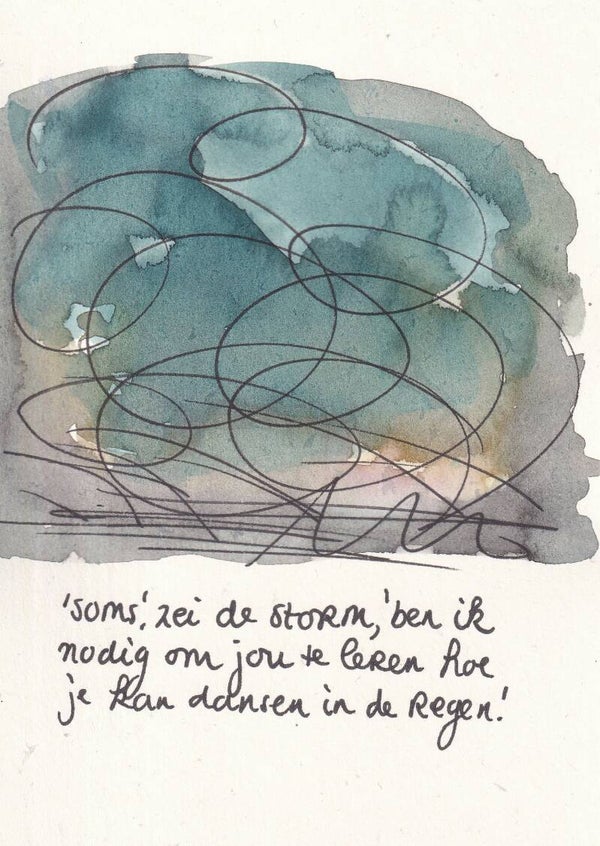 'soms', zei de storm, 'ben ik
nodig om jou te leren hoe
je kan dansen in de regen.'